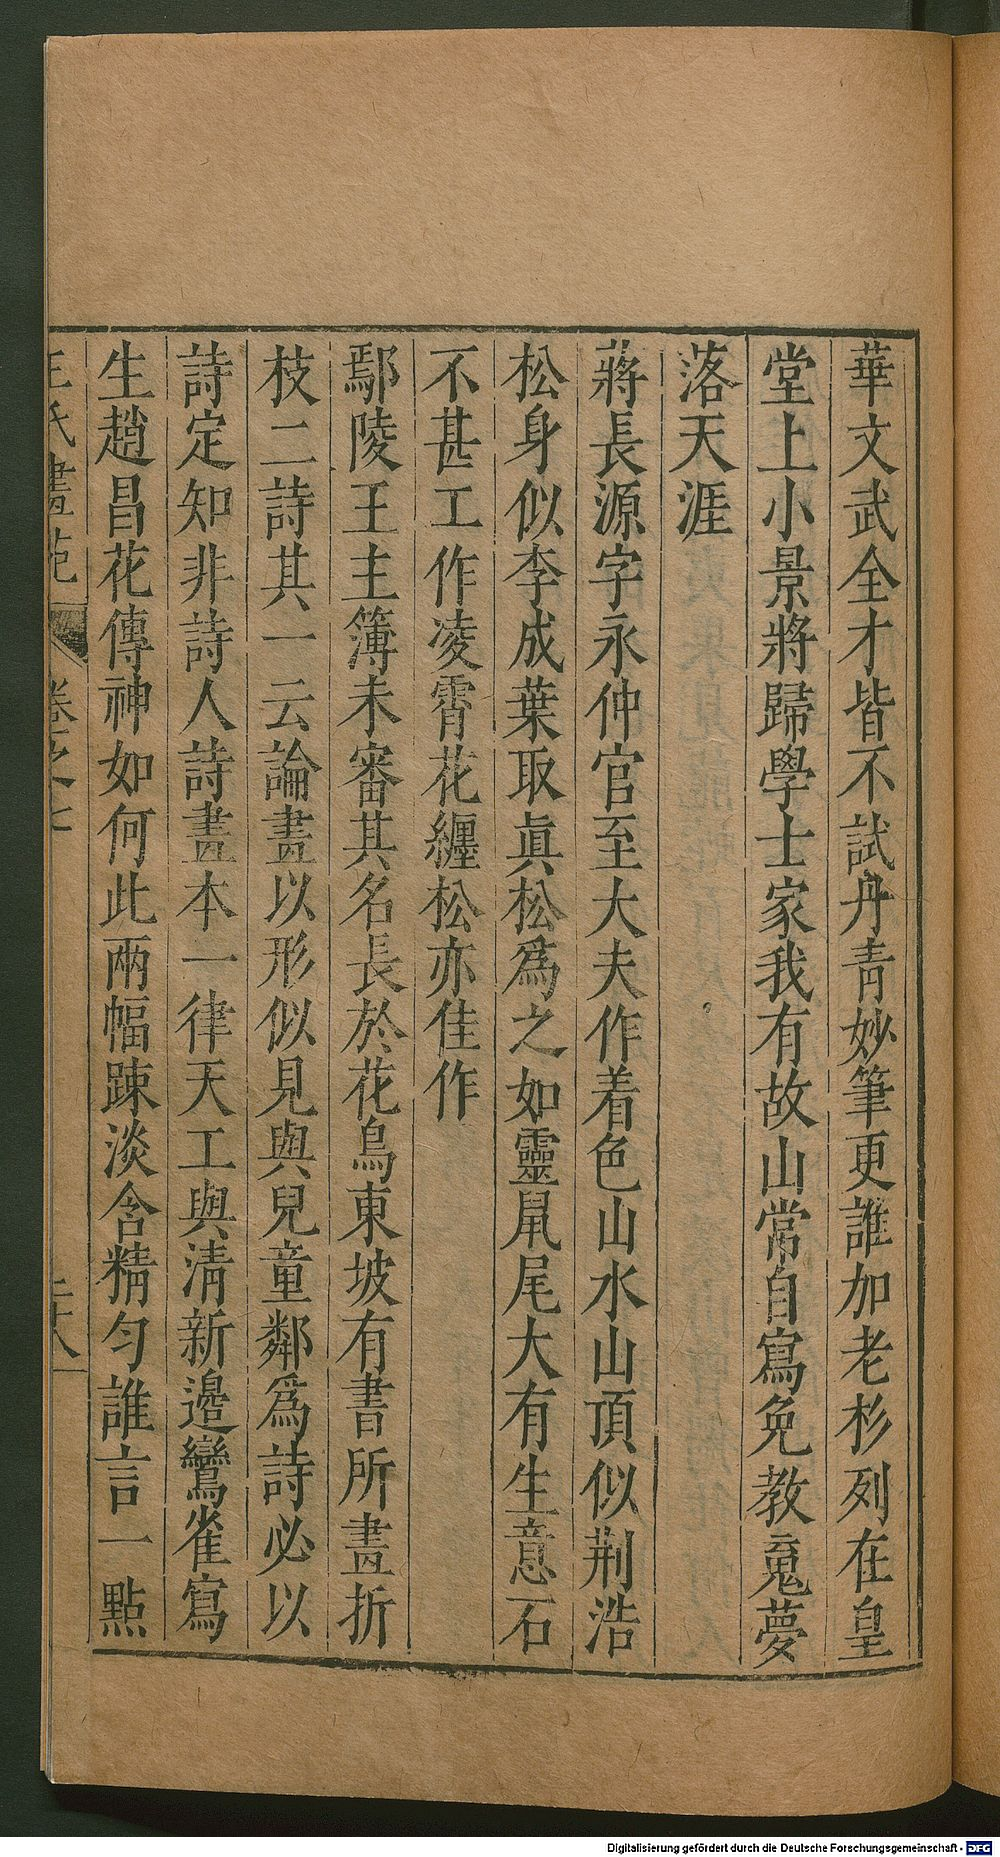 華文武全才皆不試丹青妙筆更誰加老杉列在皇
堂上小景將歸學士家我有故山常自寫免教䰟夢
落天涯
蔣長源字永仲官至大夫作着色山水山頂似荆浩
松身似李成葉取眞松爲之如靈鼠尾大有生意石
不甚工作凌霄花纏松亦佳作
鄢陵王主簿未審其名長於花鳥東坡有書所畫折
枝二詩其一云論畫以形似見與兒童鄰爲詩必以
詩定知非詩人詩畫本一律天工與清新邉鸞雀寫
生趙昌花傳神如何此兩幅踈淡含精匀誰言一點
王氏畫苑 卷之七 二十八
Digitalisierung gefördert durch die Deutsche Forschungsgemeinschaft - DFG